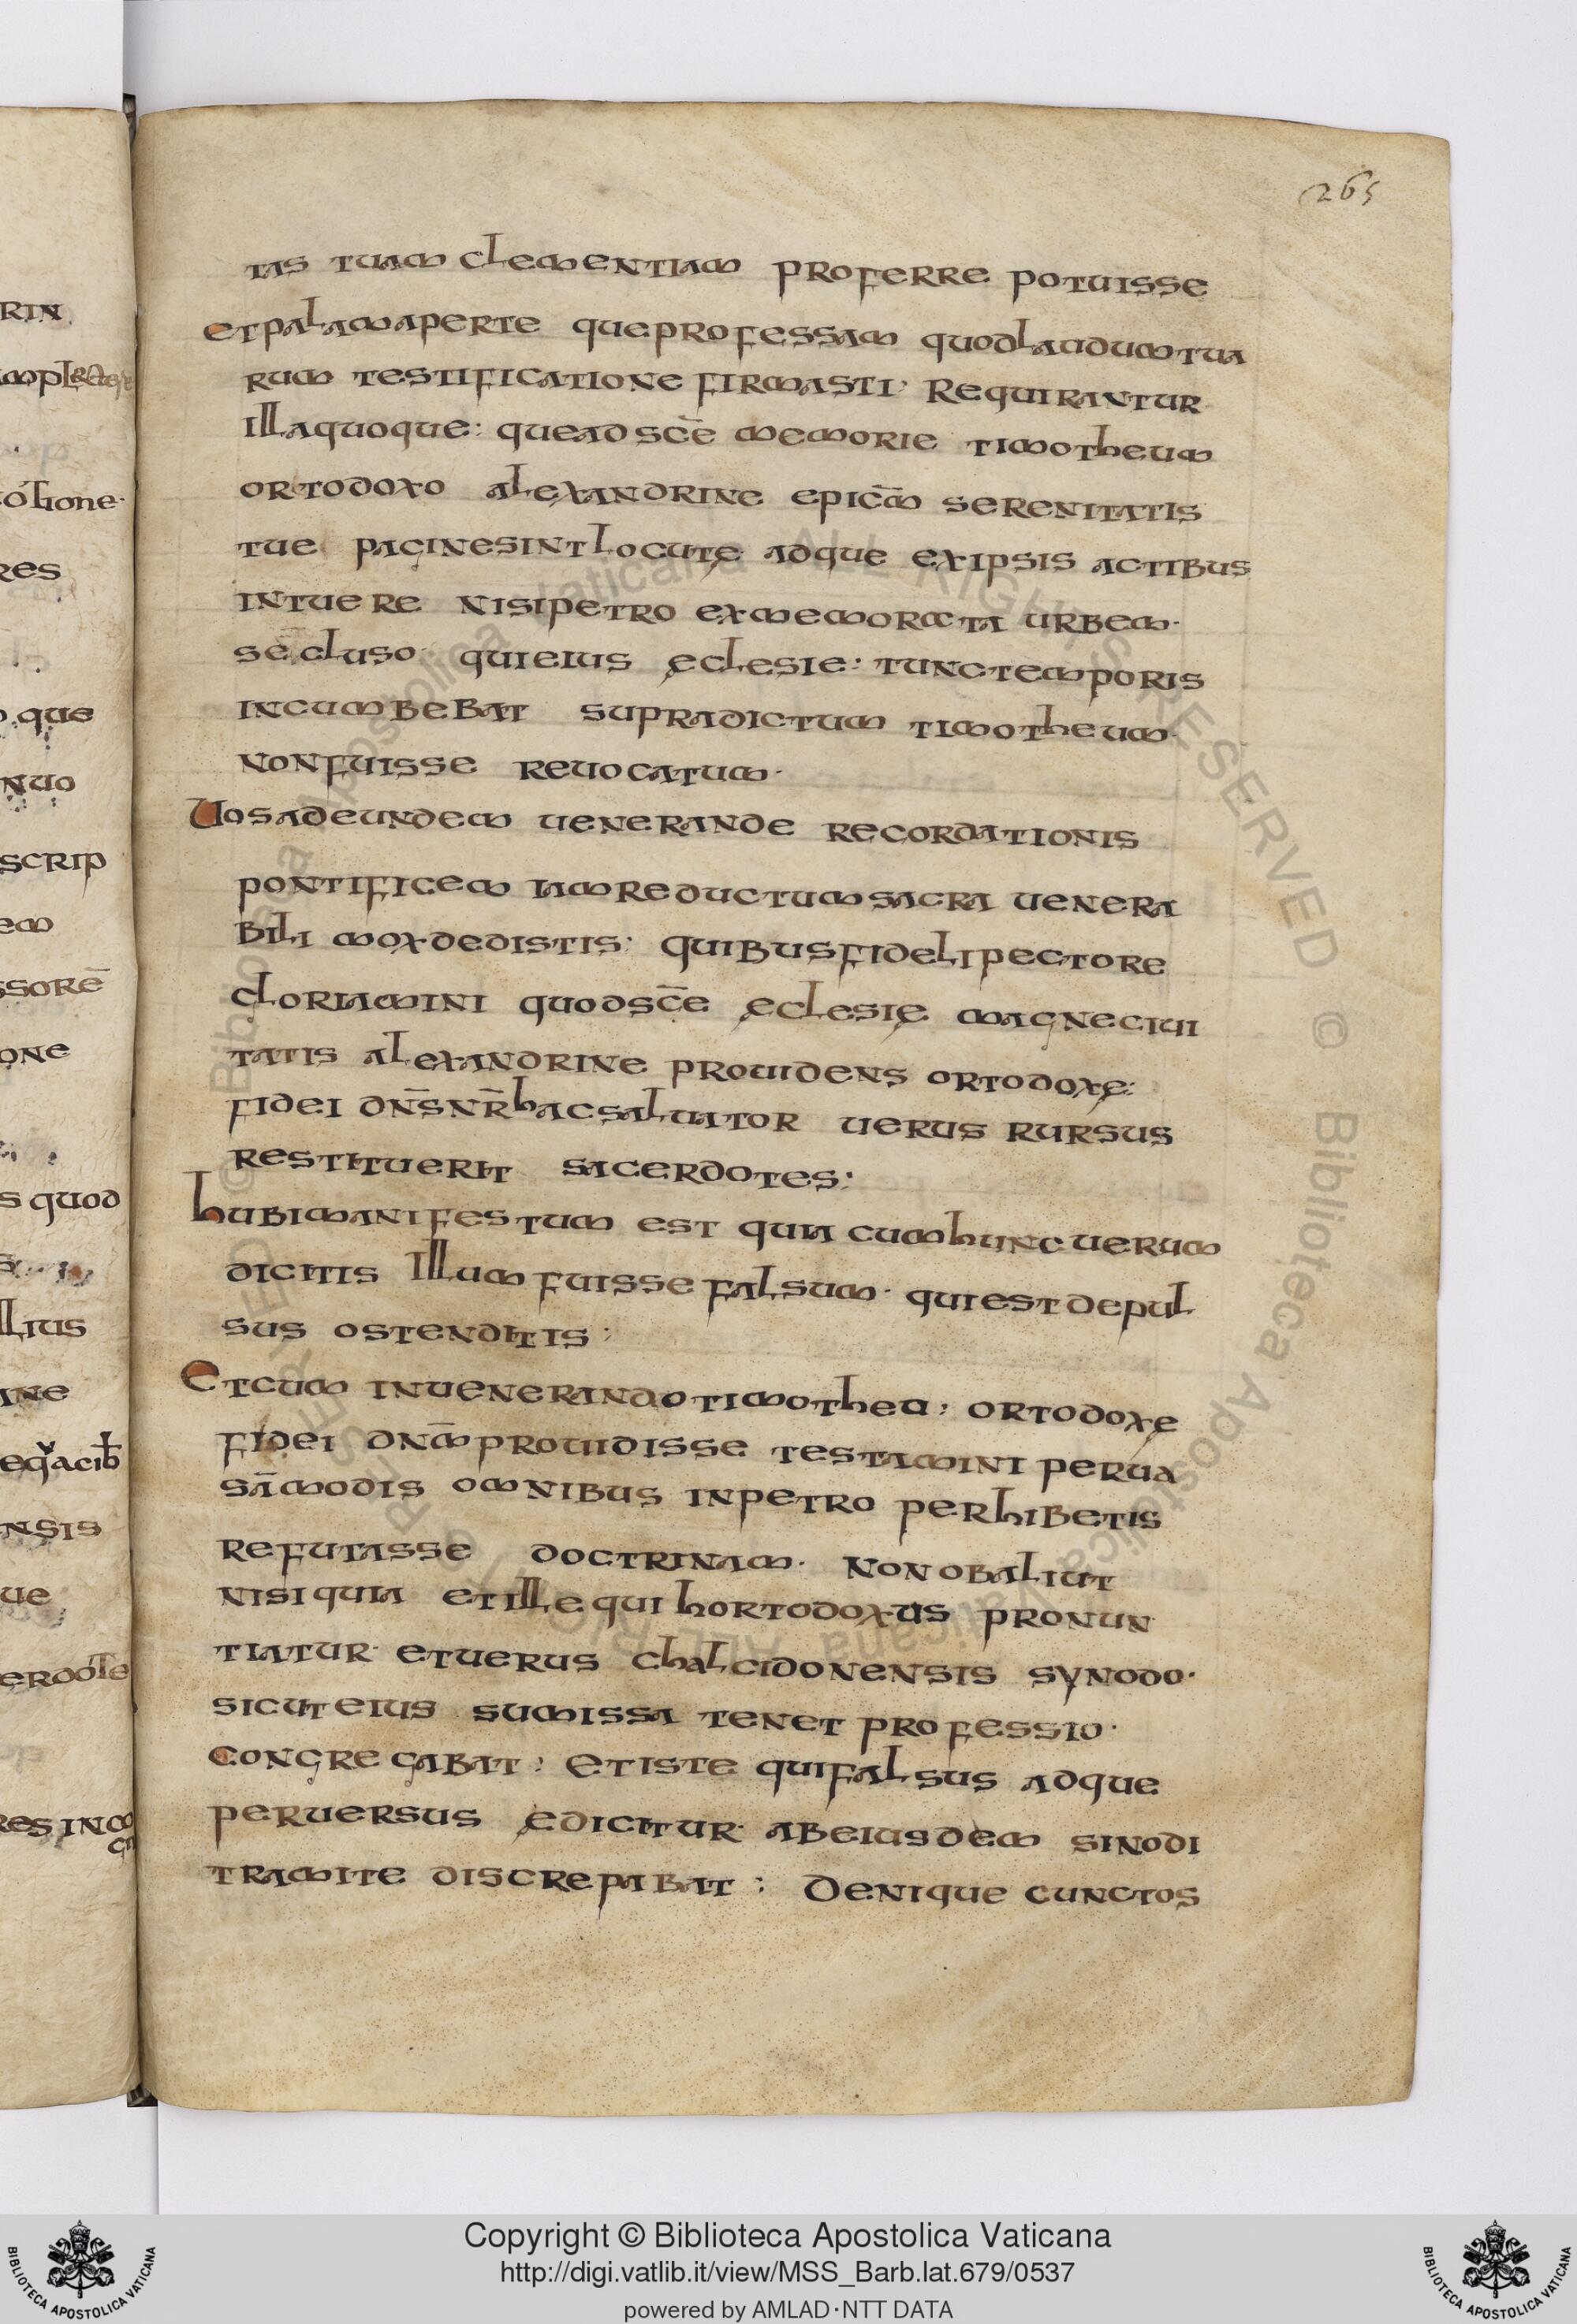 265
tas tuam clementiam proferre potuisse
et palam aperte que professam quod laudum tua
rum testificatione firmasti· Requirantur
Illa quoque: que ad sc̄e memorie timotheum
ortodoxo alexandrine epic̄m serenitatis
tue pagine sint locutę adque ex ipsis actibus
intuere nisi petro ex memorata urbem·
sēcluso· qui eius ęclesie: tunc temporis
incumbebat supradictum timotheum·
non fuisse reuocatum·
Uos ad eundem uenerande recordationis
pontificem iam reductum sacra uenera
bili mox dedistis: quibus fideli pectore
gloriamini quod sc̄e ęclesię magne ciui
tatis alexandrine prouidens ortodoxę:
fidei dn̄s nr̄ hac saluator uerus rursus
restituerit sacerdotes:
hubi manifestum est quia cum hunc uerum
dicitis Illum fuisse falsum· qui est depul
sus ostenditis:
Et cum in uenerando timotheu: ortodoxę
fidei dnm̄ prouidisse testamini perua
sā modis omnibus in petro perhibetis
refutasse doctrinam· non ob aliut
nisi quia et ille qui hortodoxus pronun
tiatur· et uerus chalcidonensis synodo·
sicut eius sumissa tenet professio·
congregabat: Et iste qui falsus adque
peruersus ędicitur· ab eiusdem sinodi
tramite discrepabat: Denique cunctos
rin
res
que
nuo
scrip
em
ssorē
one
s quod
llius
ine
ensis
ue
Copyright © Biblioteca Apostolica Vaticana
http://digi.vatlib.it/view/MSS_Barb.lat.679/0537
powered by AMLAD·NTT DATA
BIBLIOTECA APOSTOLICA VATICANA
BIBLIOTECA APOSTOLICA VATICANA
© Biblioteca Apostolica Vaticana ALL RIGHTS RESERVED